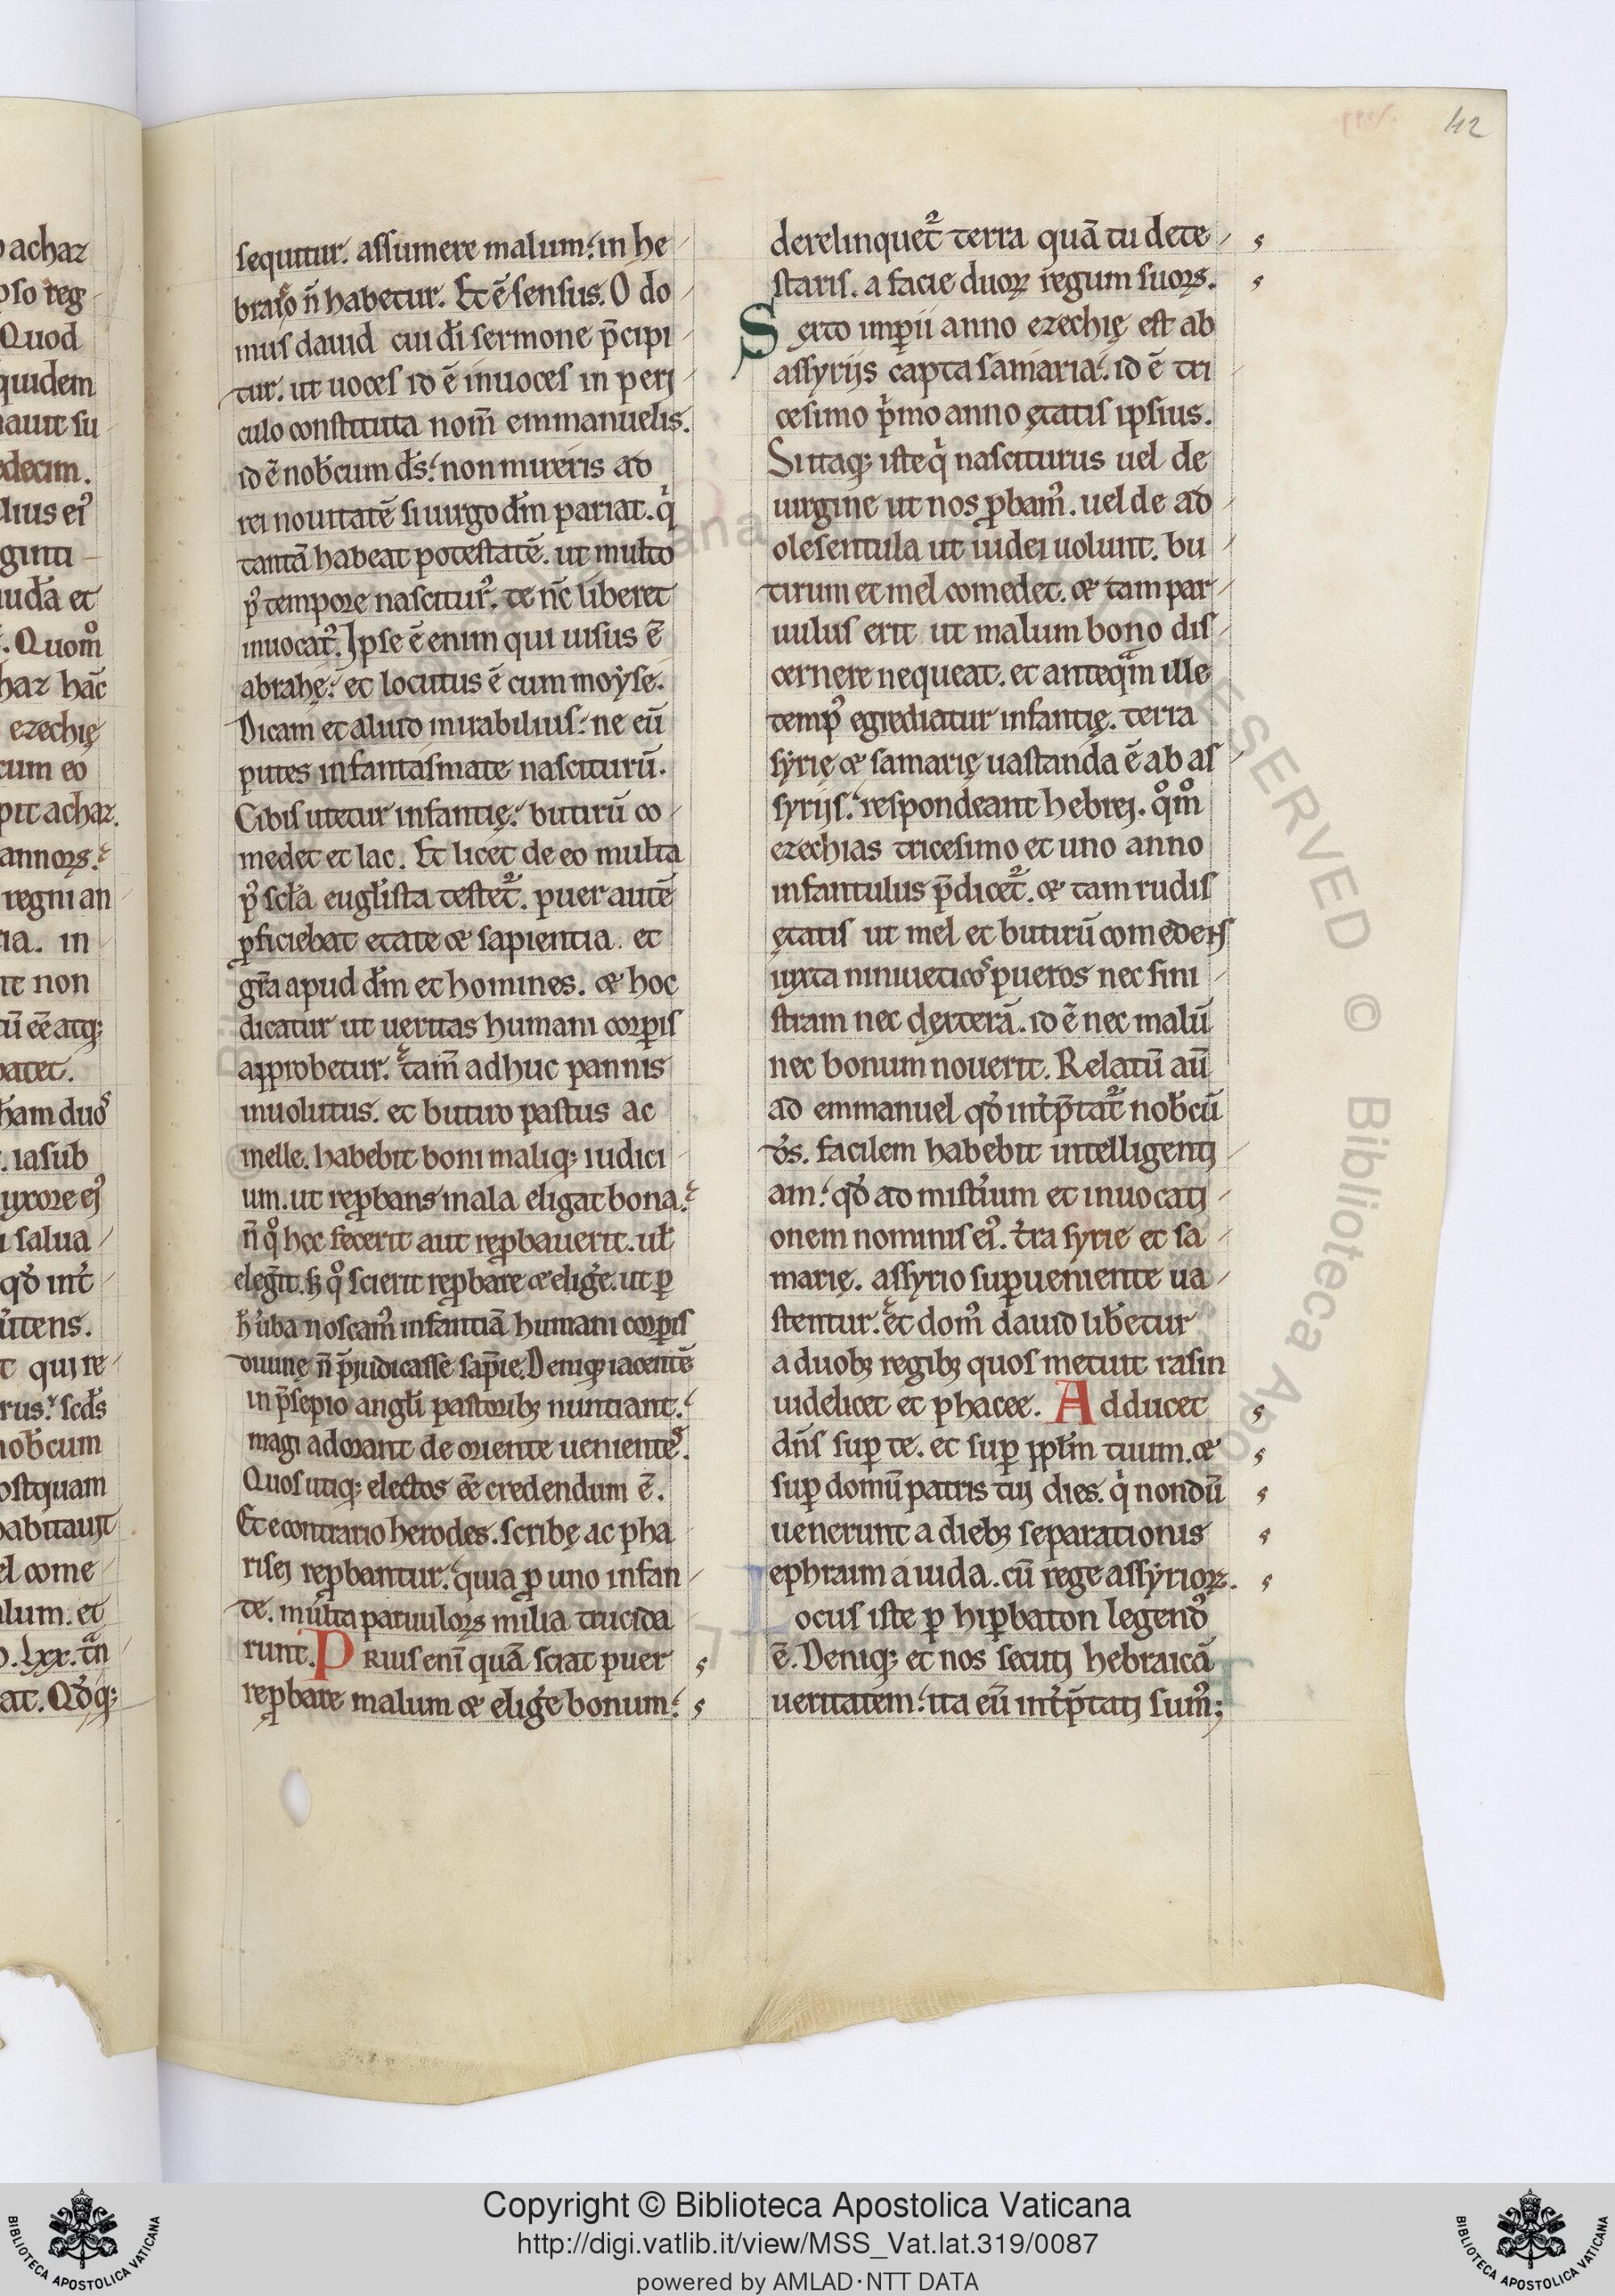 42
achaz
pso reg
Quod
quidem
nauit su
decim.
lius ei᾽
ginti
iuda et
. Quom̊
haz hāc
ezechię
cum eo
pit achaz.
annoꝝ.
regni an
ia. in
it non
tū eē atq;
patet.
ham duos
. iasub
uxore ej᾽
i salua
qd̓ int̓
utens.
t qui re
rus. scd̓s
nob̓cum
ostquam
habitauit
el come
lum. et
o. lxx. tn̄
at. Qd̓q;
sequitur. assumere malum. in he
braico n̄ habetur. Et ē sensus. O do
mus dauid cui dī sermone p̄cipi
tur. ut uoces id ē inuoces in perj
culo constituta nom̄ emmanuelis.
id ē nob̓cum d̓s. non mireris ad
rei nouitatē si uirgo dm̄ pariat. qͥ
tantā habeat potestatē. ut multo
p᾽ tempore nascitur᾽. te nc̄ liberet
inuocat᾽. Ipse ē enim qui uisus ē
abrahę. et locutus ē cum moẏse.
Dicam et aliud mirabilius. ne eū
putes in fantasmate nasciturū.
Cibis utetur infantię. butirū co
medet et lac. Et licet de eo multa
p᾽ scla euglista testet᾽. puer autē
ꝓficiebat etate & sapientia. et
gr̄a apud dm̄ et homines. & hoc
dicatur ut ueritas humani corꝑis
approbetur. tam̄ adhuc pannis
inuolutus. et butiro pastus ac
melle. habebit boni maliq; iudici
um. ut reꝓbans mala eligat bona.
n̄ qͦ hec fecerit aut reꝓbauerit. ul̓
eleg̓it. s; qͦ scierit reꝓbare & elig̓e. ut ꝑ
h̓ uba noscam᾽ infantiā humani corꝑis
diuinę n̄ p̄iudicasse sap̄ię. Deniq; iacentē
in p̄sepio angl̓i pastorib; nuntiant.
magi adorant de oriente uenientes.
Quos utiq; electos eē credendum ē.
Et econtrario herodes. scribę ac pha
risej reꝓbantur. quia ꝓ uno infan
te. multa paruuloꝝ milia trucida
runt. PRius enī quā sciat puer
reꝓbare malum & elig̓e bonum.
derelinquet᾽ terra quā tu dete
staris. a facie duoꝝ regum suoꝝ.
Sexto imꝑii anno ezechię est ab
assyrijs capta samaria. id ē tri
cesimo pͥmo anno ętatis ipsius.
Si itaq; iste qͥ nasciturus uel de
uirgine ut nos ꝓbam᾽. uel de ad
olesentula ut iudei uolunt. bu
tirum et mel comedet. & tam par
uulus erit ut malum bono dis
cernere nequeat. et anteqᵃm ille
temp᾽ egrediatur infantię. terra
sẏrię & samarię uastanda ē ab as
syrijs. respondeant hebrej. qͦmͦ
ezechias tricesimo et uno anno
infantulus p̄dicet᾽. & tam rudis
ętatis ut mel et butirū comedens
iuxta niniueticos pueros nec sini
stram nec dexterā. id ē nec malū
nec bonum nouerit. Relatū aū
ad emmanuel qd̓ int̓p̄tat᾽ nob̓cū
d̓s. facilem habebit intelligentj
am. qd̓ ad mist̓ium et inuocatj
onem nominis ei᾽. t̓ra syrie et sa
marię. assyrio suꝑueniente ua
stentur. et dom᾽ dauid lib̓etur
a duob; regib; quos metuit rasin
uidelicet et phacee. Adducet
dn̄s suꝑ te. et suꝑ ppl̓m tuum. &
suꝑ domū patris tuj dies. qͥ nondū
uenerunt a dieb; separationis
ephraim a iuda. cū rege assẏrioꝝ.
Locus iste ꝑ hiꝑbaton legend᾽
ē. Deniq; et nos secutj hebraicā
ueritatem. ita eū int̓p̄tatj sum᾽;
Copyright © Biblioteca Apostolica Vaticana
http://digi.vatlib.it/view/MSS_Vat.lat.319/0087
powered by AMLAD·NTT DATA
BIBLIOTECA APOSTOLICA VATICANA
BIBLIOTECA APOSTOLICA VATICANA